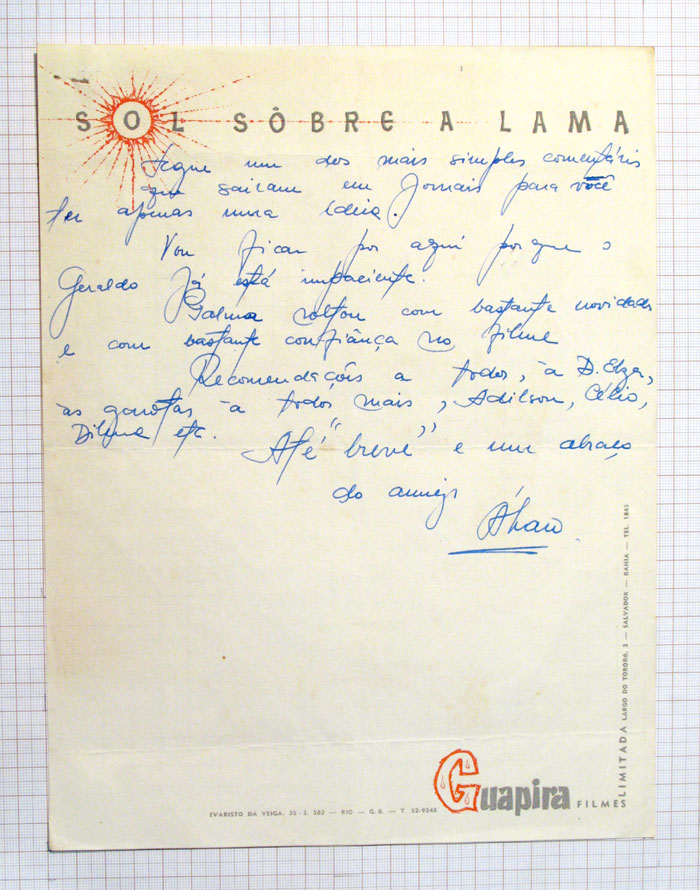 SOL SÔBRE A LAMA
Segue um dos mais simples comentários
que sairam em Jornais para você
ter apenas uma ideia.
Vou ficar por aqui porque o
Geraldo Já está impaciente.
Palma voltou com bastante novidades
e com bastante confiança no filme
Recomendações a todos, à D. Elza,
às garotas à todos mais, Adilson, Célio,
Dilma etc.
Até "breve" e um abraço
do amigo
Álvaro
Guapira FILMES LIMITADA LARGO DO TORORÓ, 2 — SALVADOR — BAHIA — TEL. 1845
EVARISTO DA VEIGA, 35 - S. 502 — RIO — G. B. — T. 52-9548